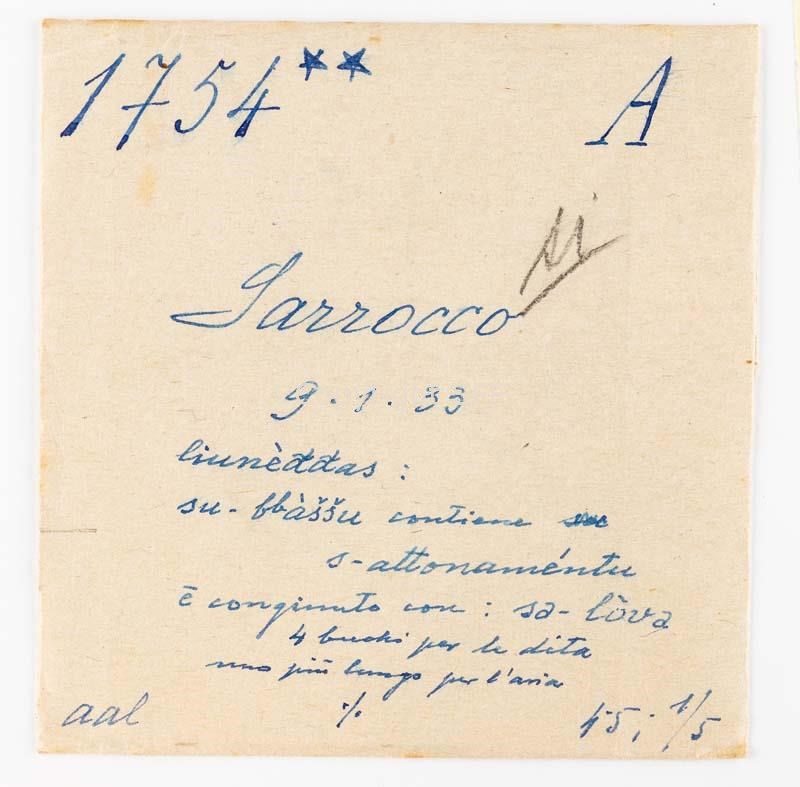 1754** A
Sarrocco
9.1.33
liunèđđas :
su-bbàššu contiene
s-attonaméntu
è conginuto con : sa-lòva
4 buchi per le dita
uno più lungo per l'aria
aal ./. 45; 1/5